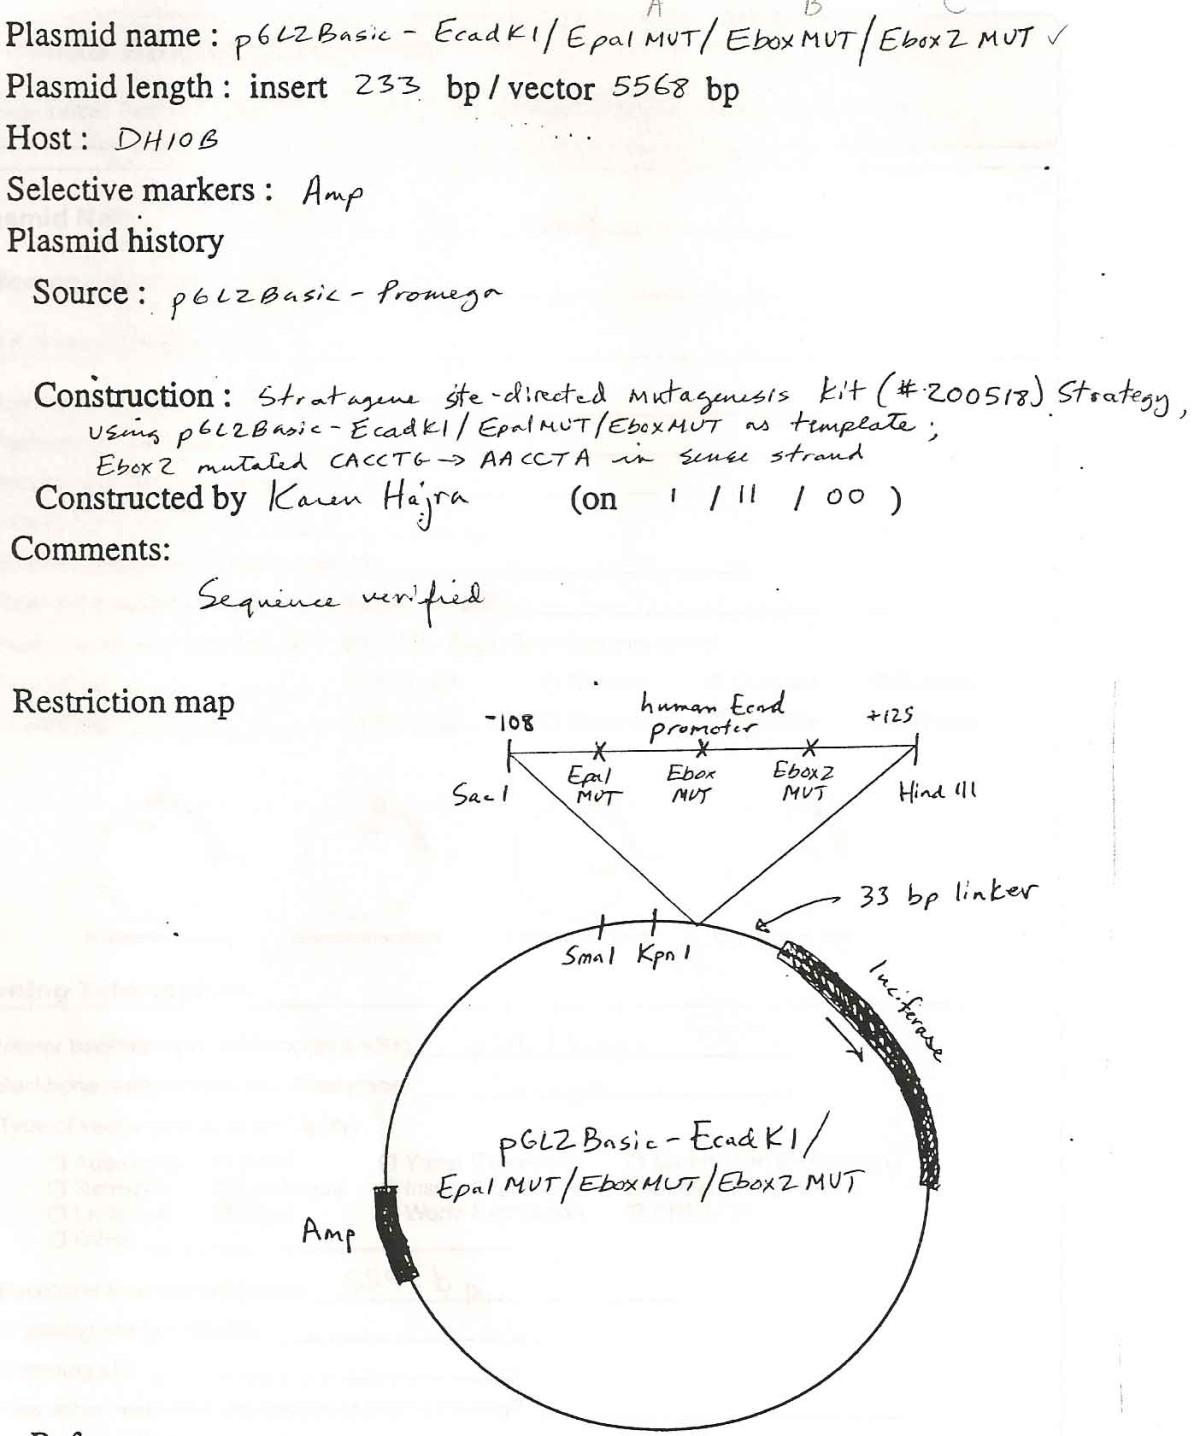 A B C
Plasmid name : pGL2Basic - EcadK1/EpalMUT/EboxMUT/Ebox2 MUT ✓
Plasmid length : insert 233 bp / vector 5568 bp
Host : DH10B
Selective markers : Amp
Plasmid history
Source : pGL2Basic - Promega
Construction : Stratagene site-directed mutagenesis kit (#200518) Strategy,
using pGL2Basic-EcadK1/EpalMUT/EboxMUT as template;
Ebox2 mutated CACCTG → AACCTA in sense strand
Constructed by Karen Hajra (on 1 / 11 / 00 )
Comments:
Sequence verified
Restriction map
-108 human Ecad +125
promoter
Epal Ebox Ebox2
MUT MUT MUT
Sac I Hind III
33 bp linker
Sma I Kpn I
luciferase
pGL2Basic-EcadK1/
EpalMUT/EboxMUT/Ebox2MUT
Amp